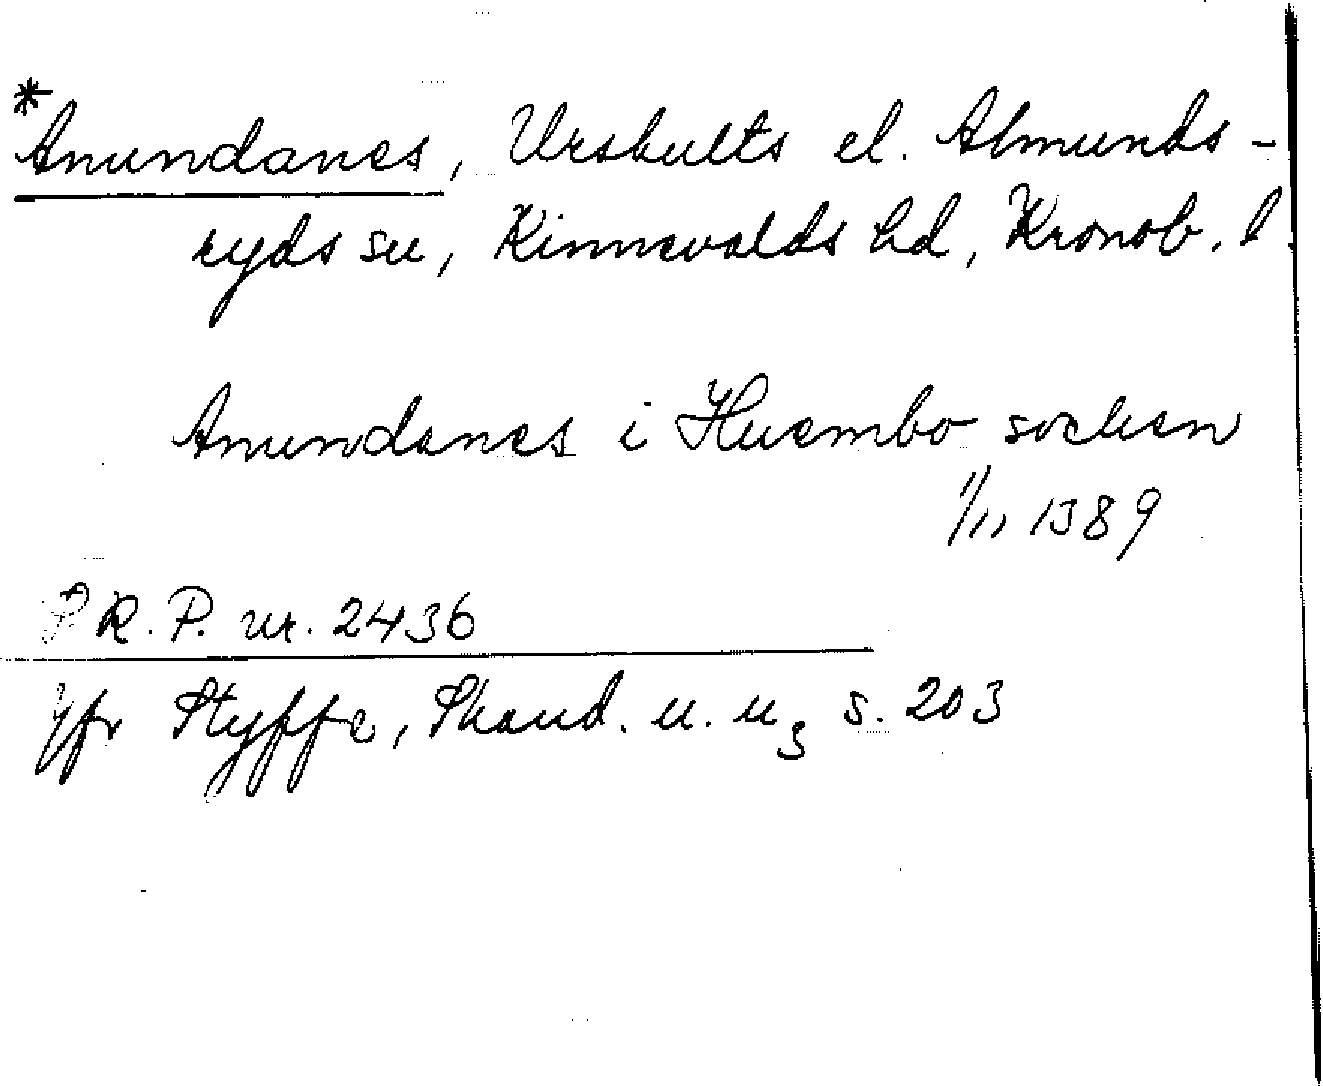 *Anundanes, Urshults el. Almunds-
ryds sn, Kinnevalds hd, Kronob. l.
Anundanes i Huembo sochen
1/11 1389
? R. P. nr. 2436
Jfr Styffe, Skand. u. u₃ s. 203